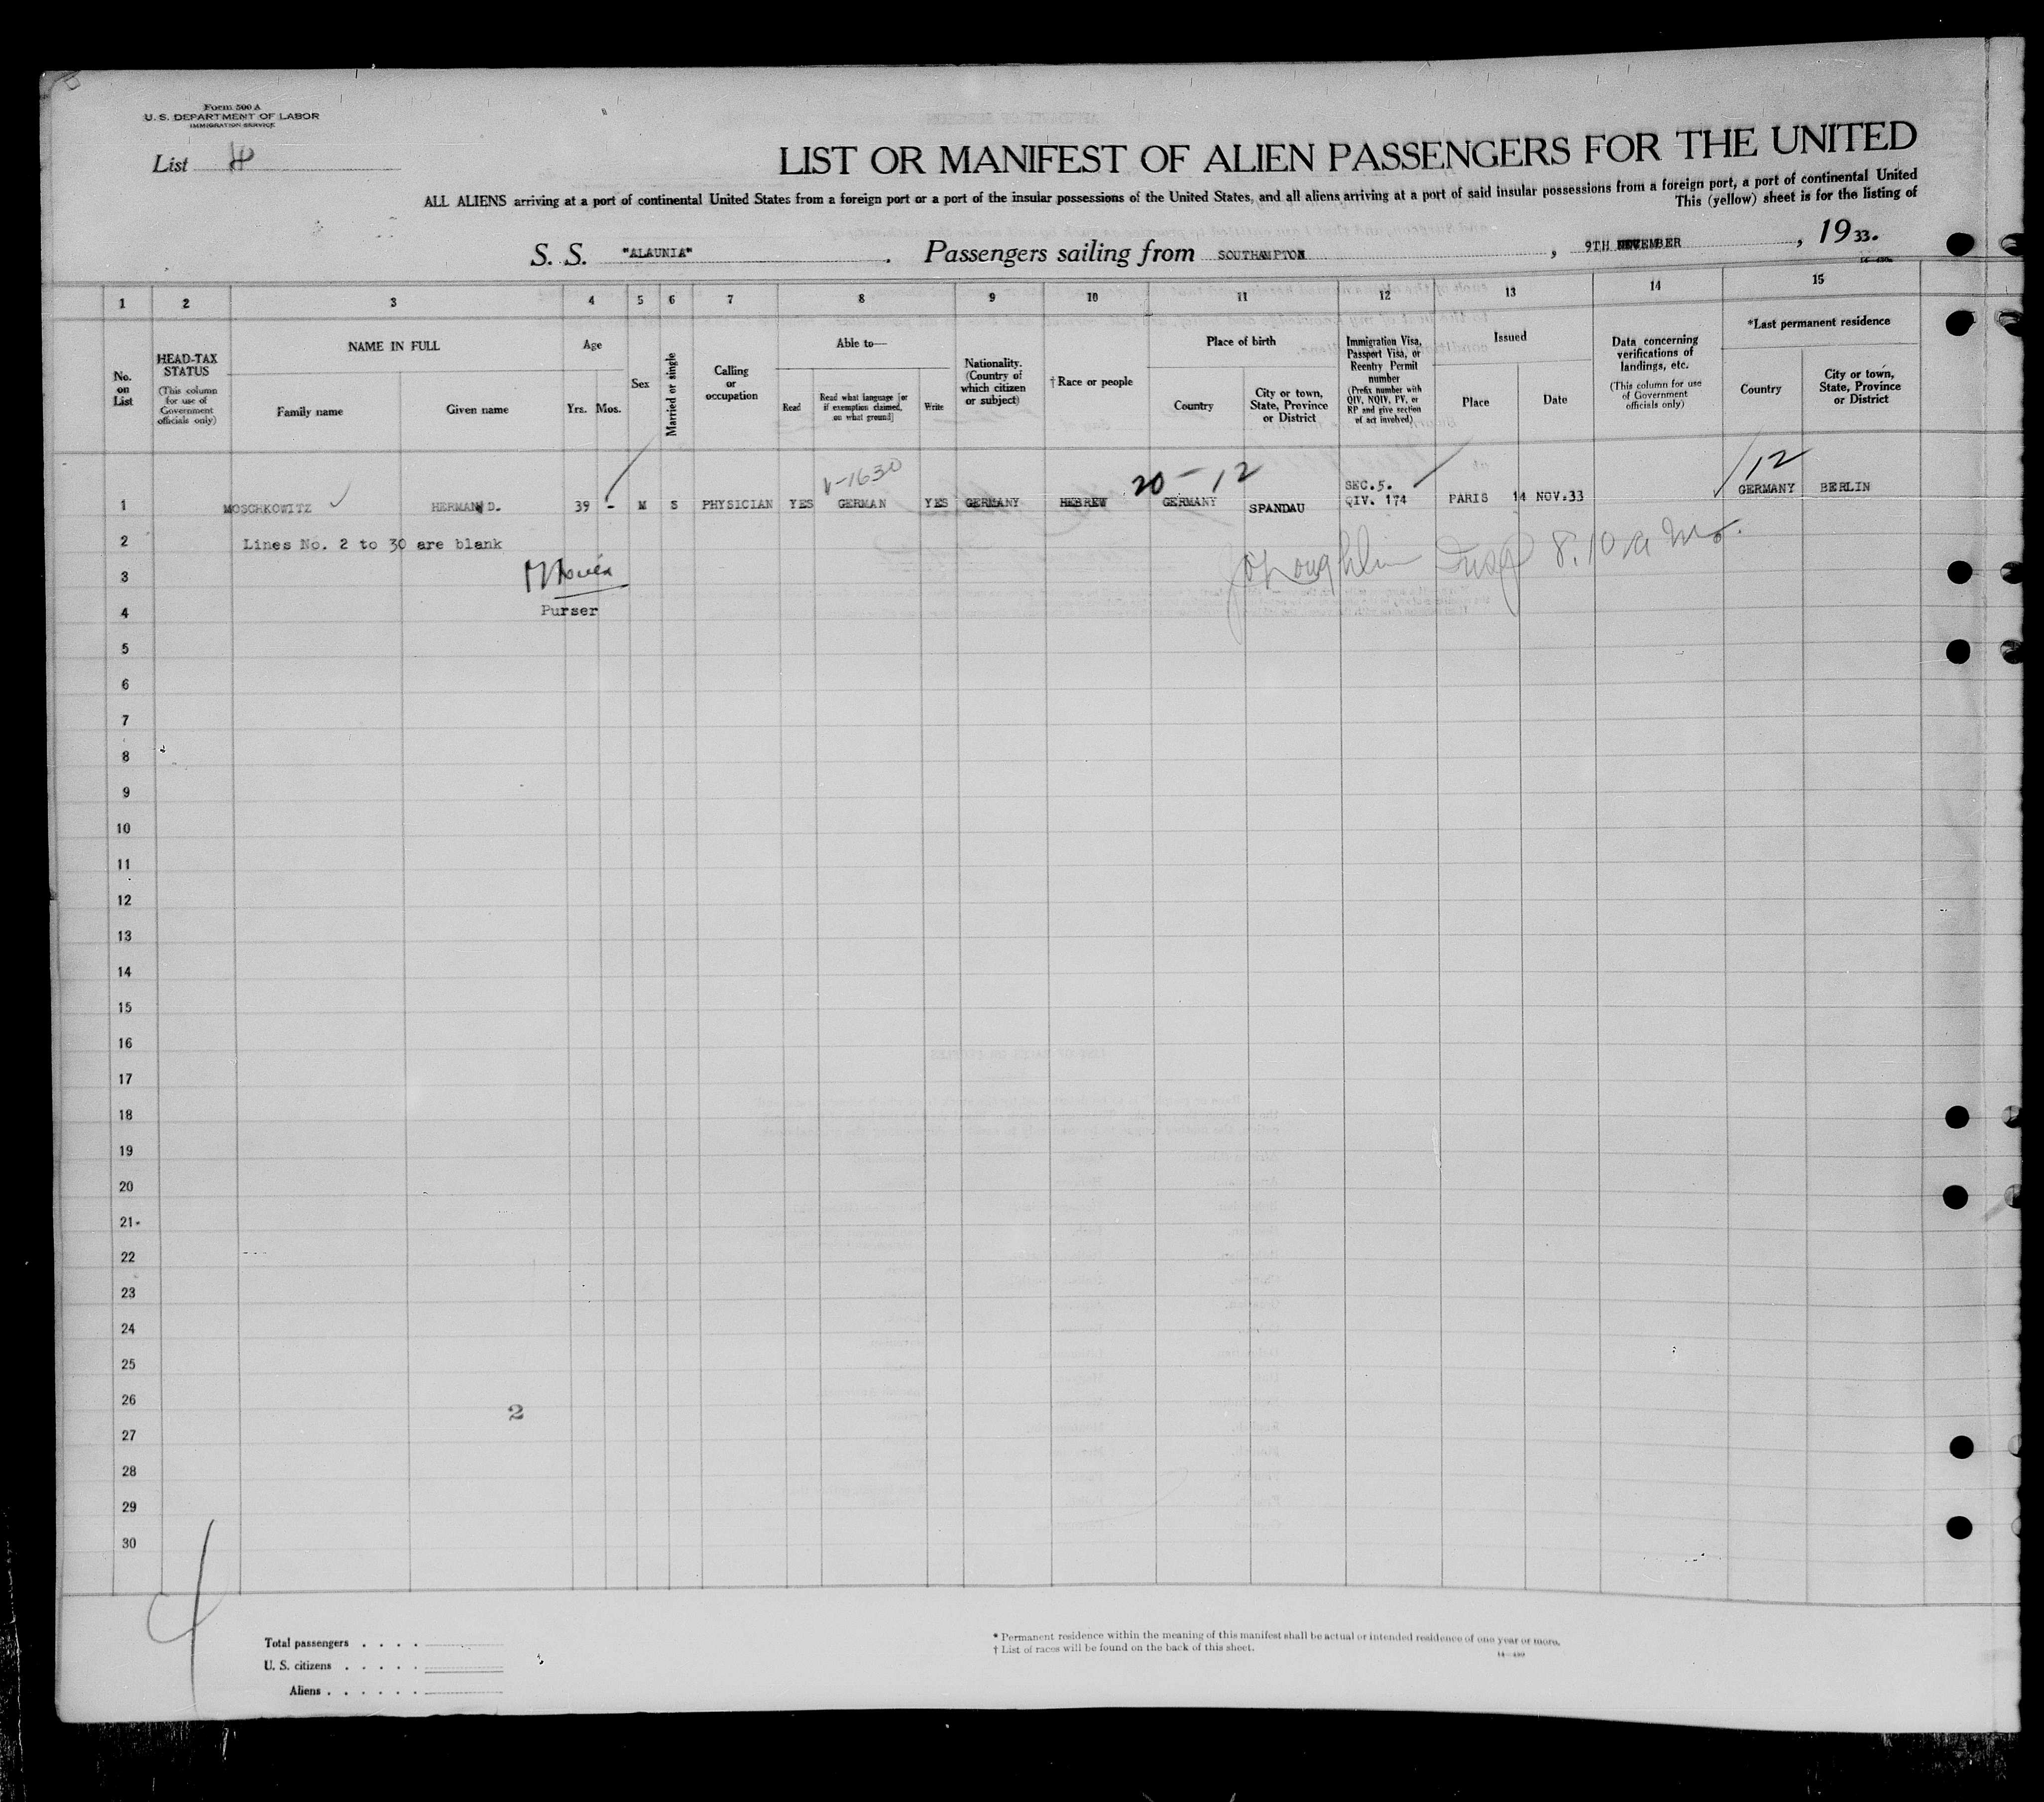 Form 500 A
U. S. DEPARTMENT OF LABOR
IMMIGRATION SERVICE
List
LIST OR MANIFEST OF ALIEN PASSENGERS FOR THE UNITED
ALL ALIENS arriving at a port of continental United States from a foreign port or a port of the insular possessions of the United States, and all aliens arriving at a port of said insular possessions from a foreign port, a port of continental United
This (yellow) sheet is for the listing of
S. S. "ALAUNIA". Passengers sailing from SOUTHAMPTON, 9TH, 1933.
1 2 3 4 5 6 7 8 9 10 11 12 13 14 15
No. on List
HEAD-TAX STATUS
(This column for use of Government officials only)
NAME IN FULL
Family name
Given name
Age
Yrs. Mos.
Sex
Married or single
Calling or occupation
Able to—
Read
Read what language [or if exemption claimed, on what ground]
Write
Nationality. (Country of which citizen or subject)
†Race or people
Place of birth
Country
City or town, State, Province or District
Immigration Visa, Passport Visa, or Reentry Permit number
(Prefix number with QIV, NQIV, PV, or RP and give section of act involved)
Issued
Place
Date
Data concerning verifications of landings, etc.
(This column for use of Government officials only)
*Last permanent residence
Country
City or town, State, Province or District
V-1630
20-12
12
1 MOSCHKOWITZ HERMAN D. 39 - M S PHYSICIAN YES GERMAN YES GERMANY HEBREW GERMANY SPANDAU SEC.5. QIV. 174 PARIS 14 NOV.33 GERMANY BERLIN
2 Lines No. 2 to 30 are blank
3
4 Purser
5
6
7
8
9
10
11
12
13
14
15
16
17
18
19
20
21
22
23
24
25
26
2
27
28
29
30
4
Total passengers . . . .
U. S. citizens . . . . .
Aliens . . . . . .
* Permanent residence within the meaning of this manifest shall be actual or intended residence of one year or more.
† List of races will be found on the back of this sheet.